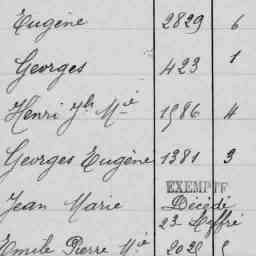 Eugène 2829 6
Georges 423 1
Henri Jh Mie 1986 4
Georges Eugène 1381 3
EXEMPTÉ
Jean Marie Décédé
23
Emile Pierre Mie 2028